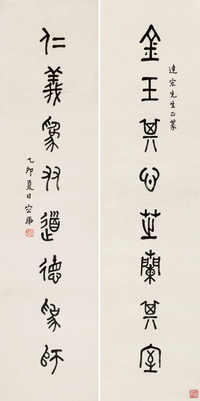 先生正篆
金玉其心芝蘭其室
仁義為友道德為師
乙卯夏日容庚